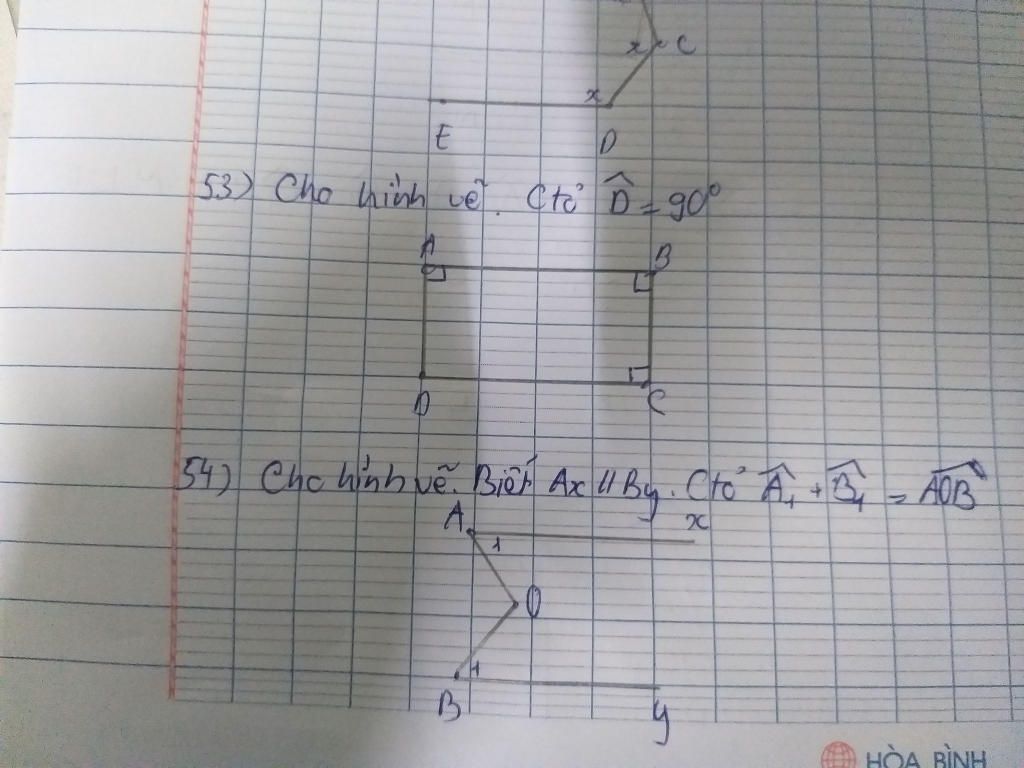 x C
x
E D
53) Cho hình vẽ. Ctỏ D̂ = 90°
A B
D C
54) Cho hình vẽ. Biết Ax // By. Ctỏ Â₁ + B̂₁ = AOB̂
A x
1
O
1
B y
HÒA BÌNH